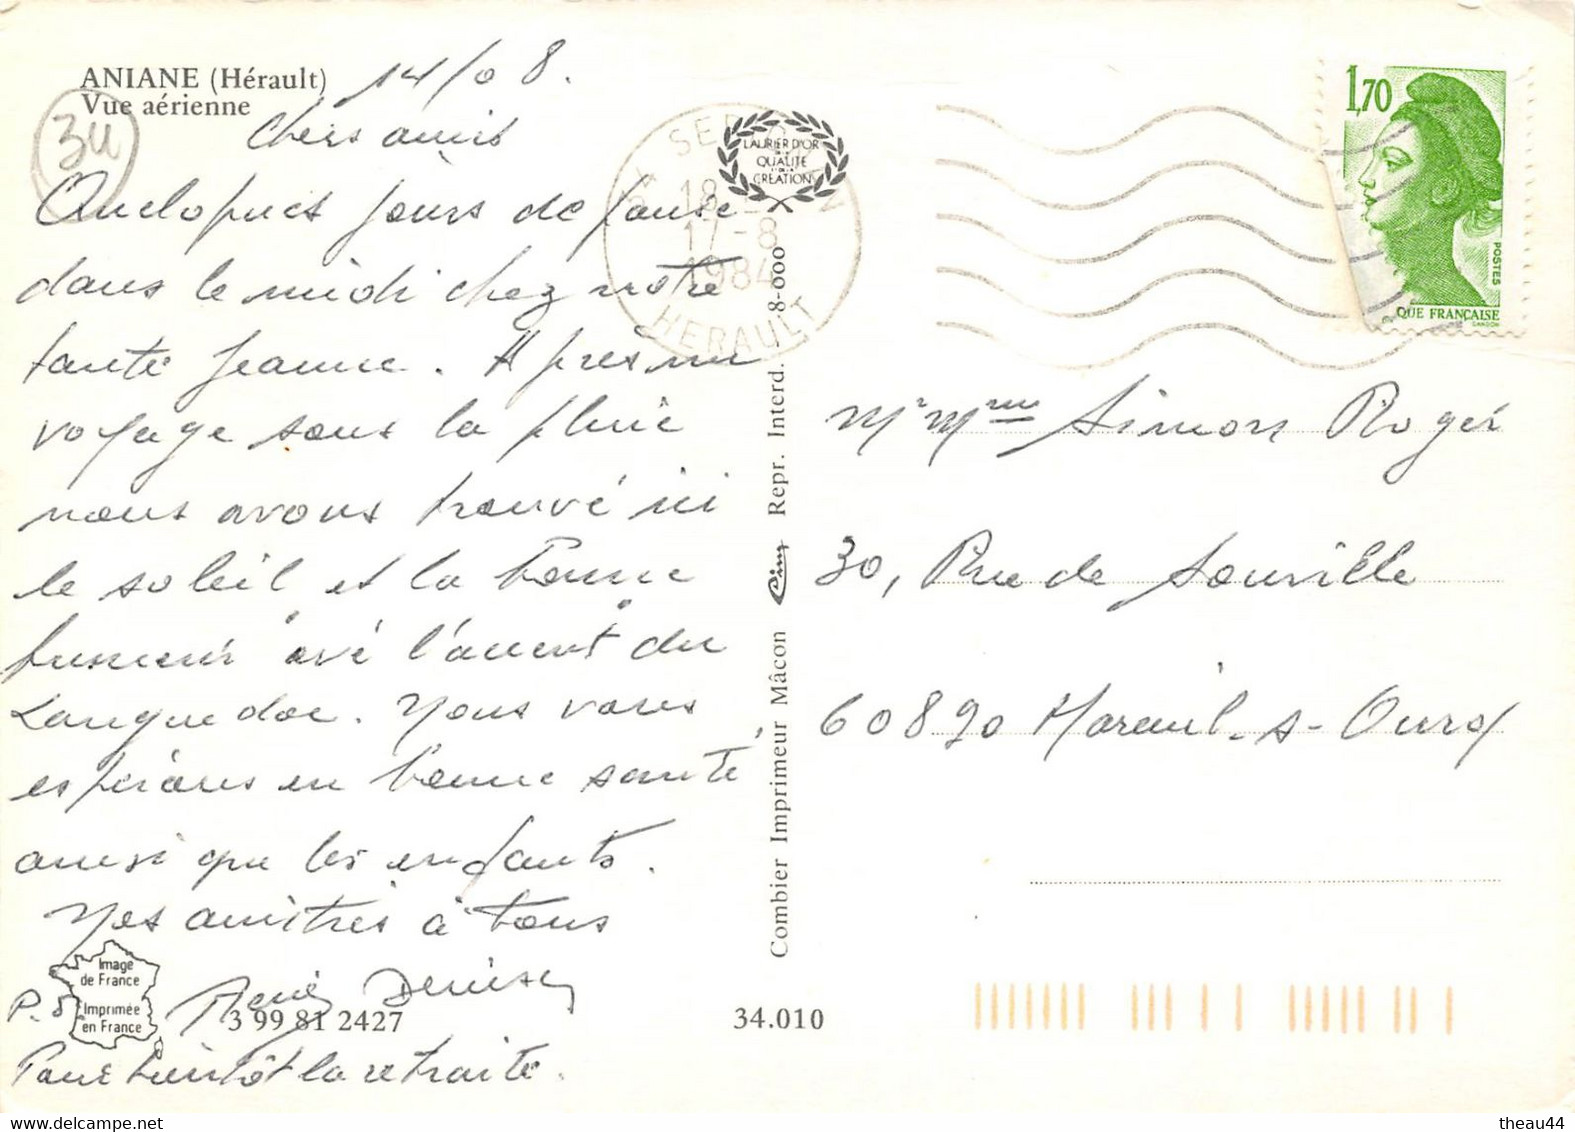 ANIANE (Hérault)
Vue aérienne
14/08.
34
Chers amis
Quelques jours de pause
dans le midi chez notre
tante Jeanne. Après un
voyage sous la pluie
nous avons trouvé ici
le soleil et la bonne
humeur "avé l'accent" du
Languedoc. Nous vous
espérons en bonne santé
ainsi que les enfants.
Nos amitiés à tous
René Denise
P.S.
Pour bientôt la retraite.
Image
de France
Imprimée
en France
3 99 81 2427
34.010
LAURIER D'OR
DE LA
QUALITÉ
DE LA
CRÉATION
34 SER
18
17-8
1984
HERAULT
Combier Imprimeur Mâcon Cim Repr. Interd. 8-000
1,70
POSTES
QUE FRANÇAISE
GANDON
Mr Mme Simon Roger
30, Rue de Souville
60890 Mareuil-s-Ourcq
theau44